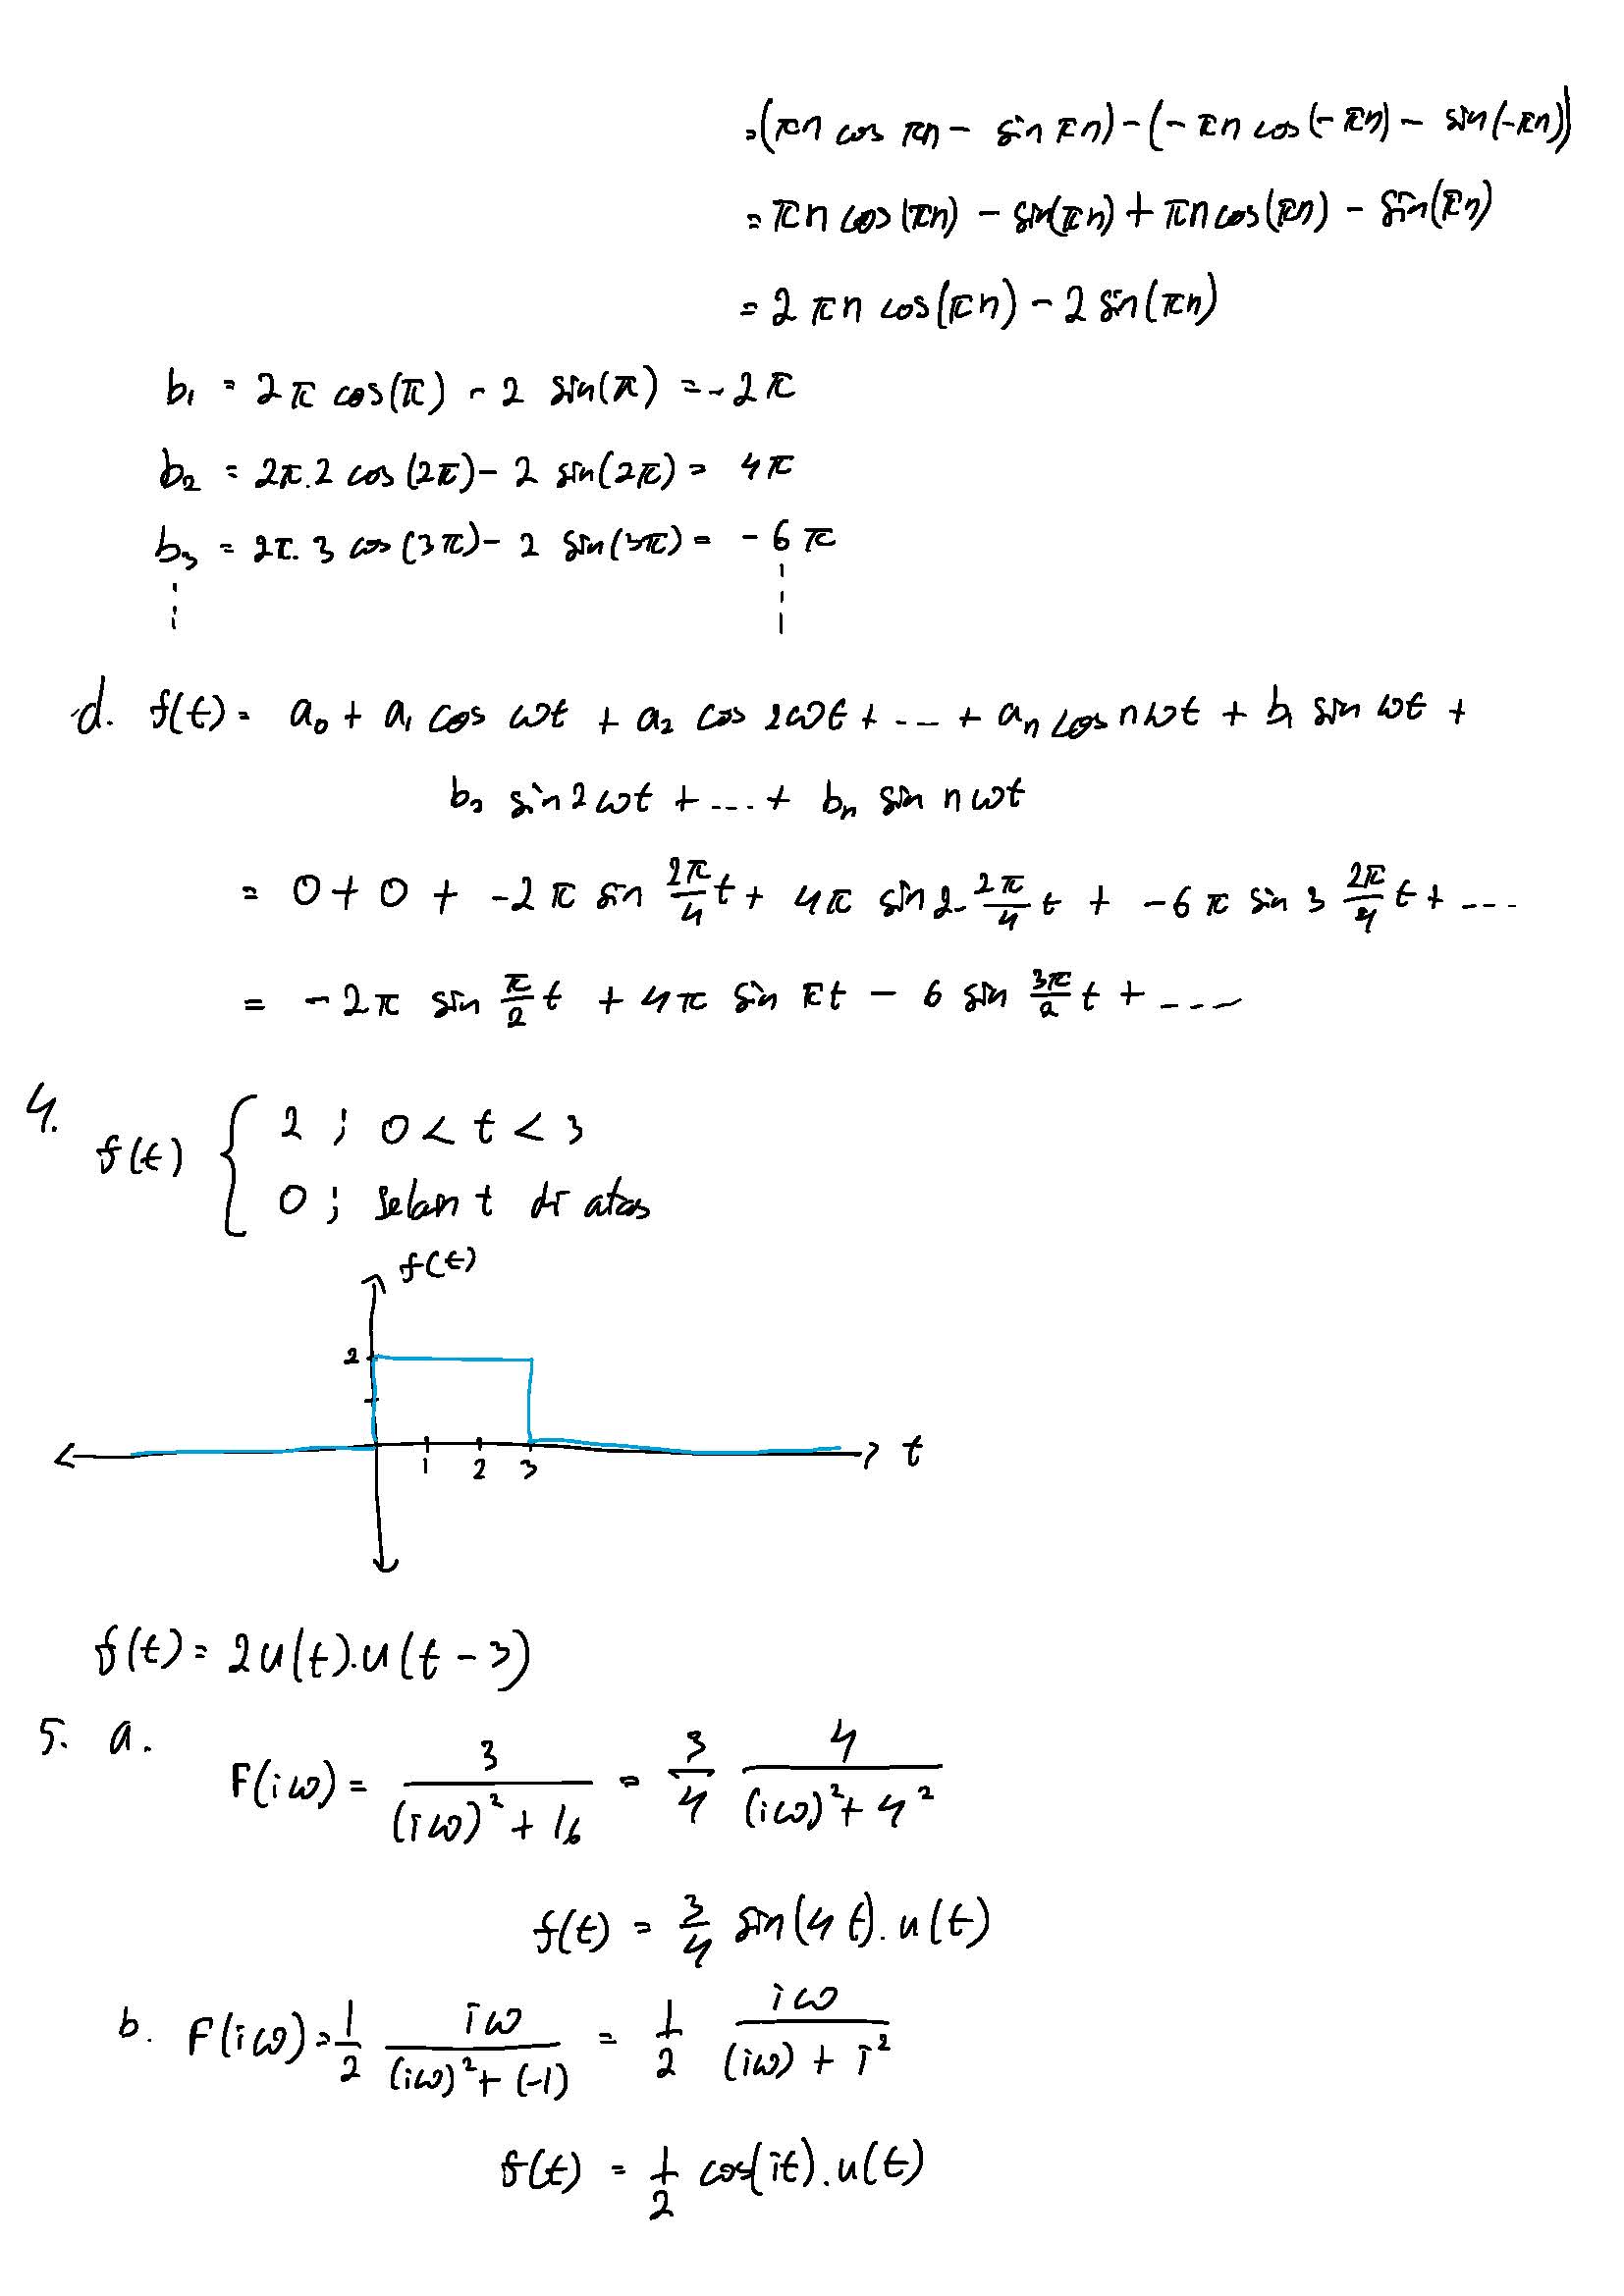 = (πn cos πn - sin πn) - (-πn cos(-πn) - sin(-πn))
= πn cos(πn) - sin(πn) + πn cos(πn) - sin(πn)
= 2πn cos(πn) - 2 sin(πn)
b₁ = 2π cos(π) - 2 sin(π) = -2π
b₂ = 2π.2 cos(2π) - 2 sin(2π) = 4π
b₃ = 2π.3 cos(3π) - 2 sin(3π) = -6π
d. f(t) = a₀ + a₁ cos ωt + a₂ cos 2ωt + ... + aₙ cos nωt + b₁ sin ωt +
b₂ sin 2ωt + ... + bₙ sin nωt
= 0 + 0 + -2π sin 2π/4 t + 4π sin 2. 2π/4 t + -6π sin 3 2π/4 t + ...
= -2π sin π/2 t + 4π sin πt - 6 sin 3π/2 t + ....
4. f(t) { 2 ; 0 < t < 3
0 ; selain t di atas
f(t)
2
1 2 3
t
f(t) = 2u(t).u(t-3)
5. a. F(iω) = 3/((iω)² + 16) = 3/4 4/((iω)² + 4²)
f(t) = 3/4 sin(4t).u(t)
b. F(iω) = 1/2 iω/((iω)² + (-1)) = 1/2 iω/((iω) + i²)
f(t) = 1/2 cos(it).u(t)